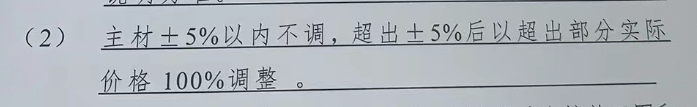 （2） 主材±5%以内不调，超出±5%后以超出部分实际
价格 100%调整 。